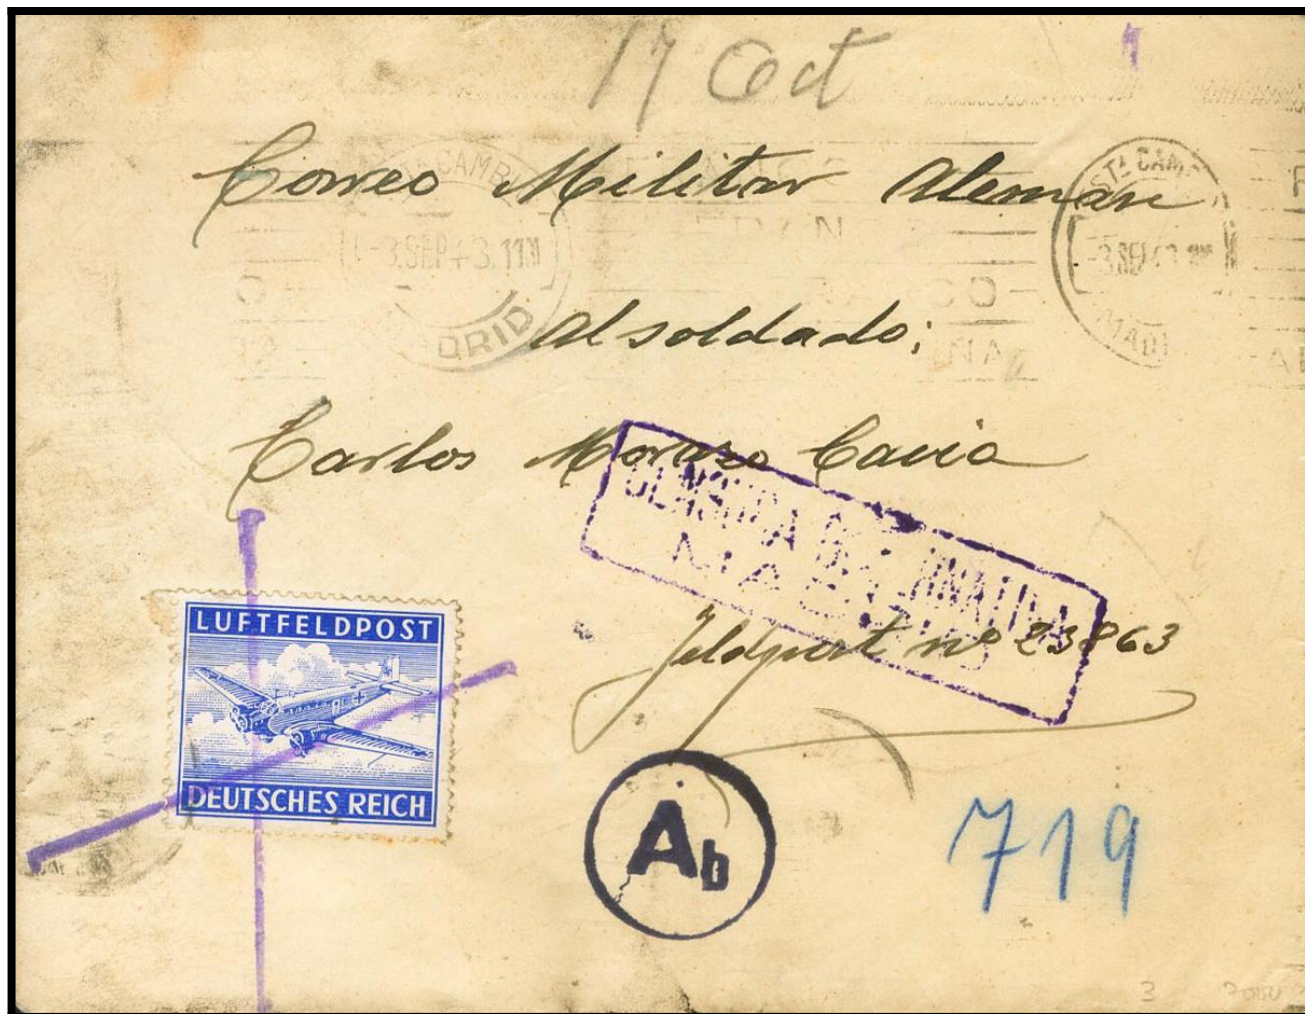 17 Oct
Correo Militar Aleman
-3.SEP 43.11M
MADRID
Al soldado;
Carlos Cavia
CENSURA GUBERNATIVA
MADRID
Feldpost nº 23863
LUFTFELDPOST
DEUTSCHES REICH
Ab
719
3 7000